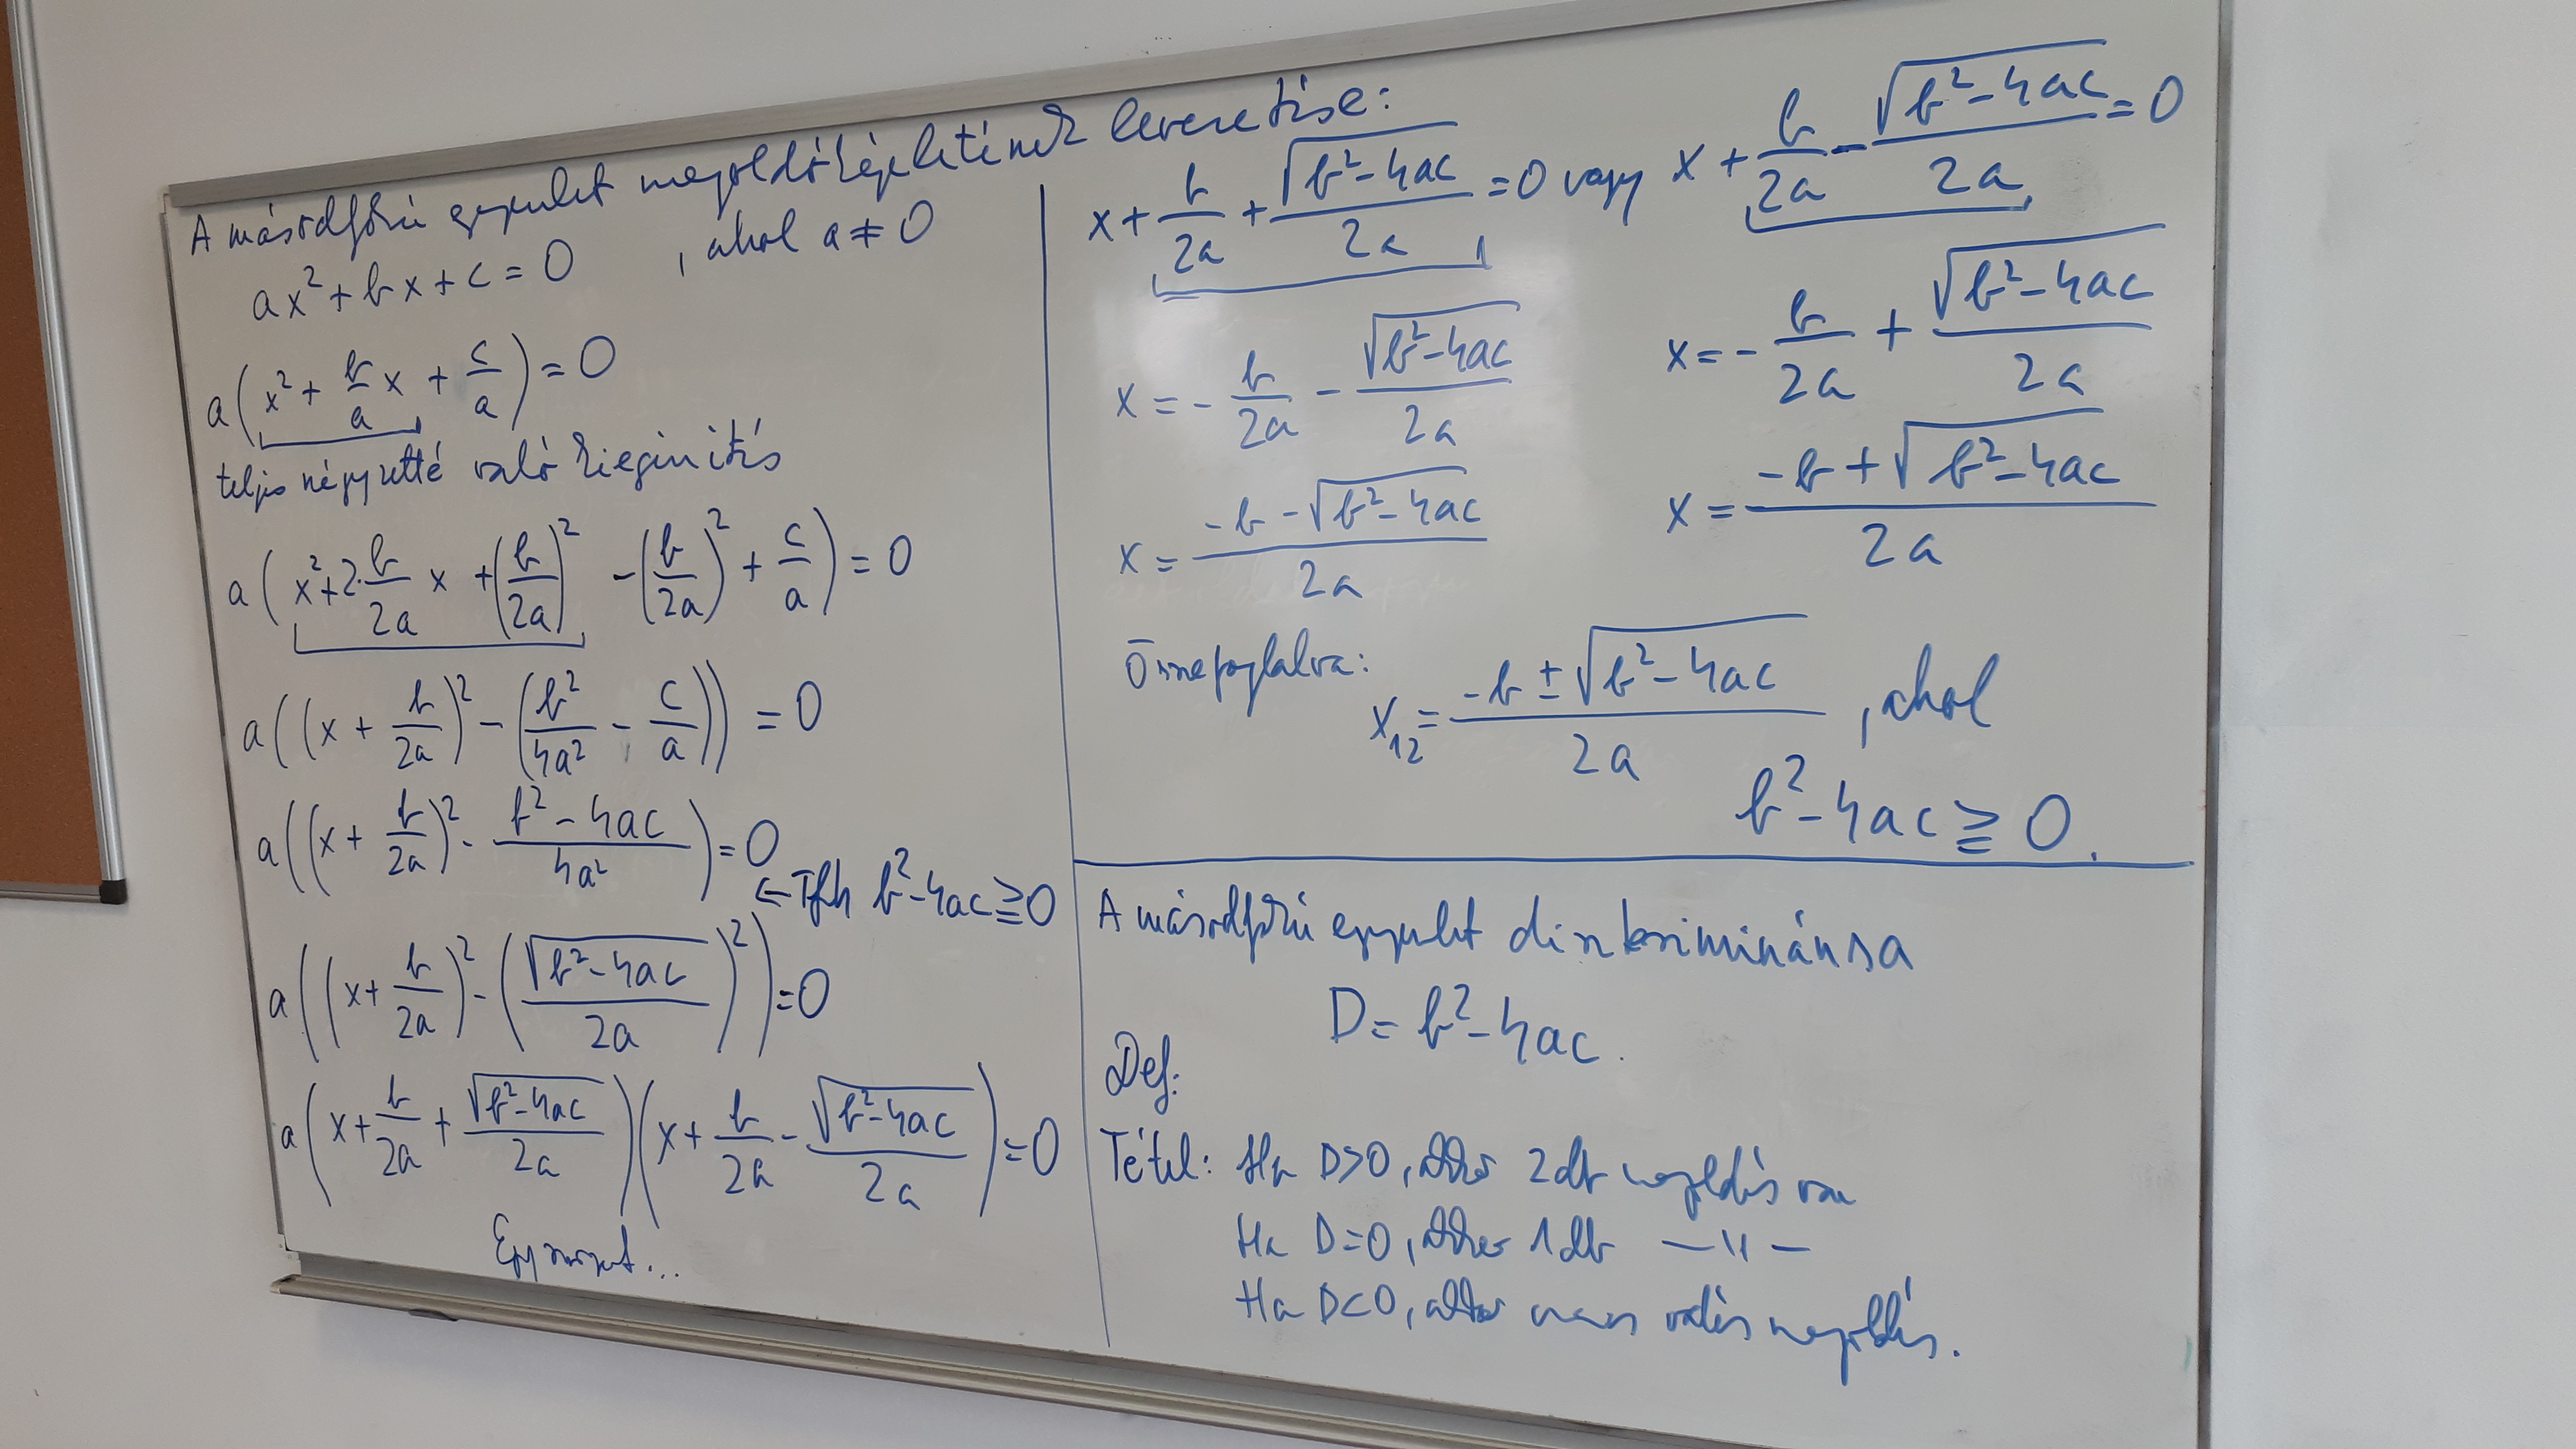 A másodfokú egyenlet megoldóképletének levezetése:
ax² + bx + c = 0 , ahol a ≠ 0
a(x² + b/a x + c/a) = 0
teljes négyzetté való kiegészítés
a(x² + 2·b/2a x + (b/2a)² - (b/2a)² + c/a) = 0
a((x + b/2a)² - (b²/4a² - c/a)) = 0
a((x + b/2a)² - (b² - 4ac)/4a²) = 0
← Tfh b² - 4ac ≧ 0
a((x + b/2a)² - (√(b² - 4ac)/2a)²) = 0
a(x + b/2a + √(b² - 4ac)/2a)(x + b/2a - √(b² - 4ac)/2a) = 0
Egy szorzat...
x + b/2a + √(b² - 4ac)/2a = 0 vagy x + b/2a - √(b² - 4ac)/2a = 0
x = - b/2a - √(b² - 4ac)/2a x = - b/2a + √(b² - 4ac)/2a
x = (-b - √(b² - 4ac))/2a x = (-b + √(b² - 4ac))/2a
Összefoglalva:
x₁₂ = (-b ± √(b² - 4ac))/2a , ahol
b² - 4ac ≧ 0.
A másodfokú egyenlet diszkriminánsa
D = b² - 4ac.
Def:
Tétel: Ha D>0, akkor 2 db megoldás van
Ha D=0, akkor 1 db —〃—
Ha D<0, akkor nincs valós megoldás.